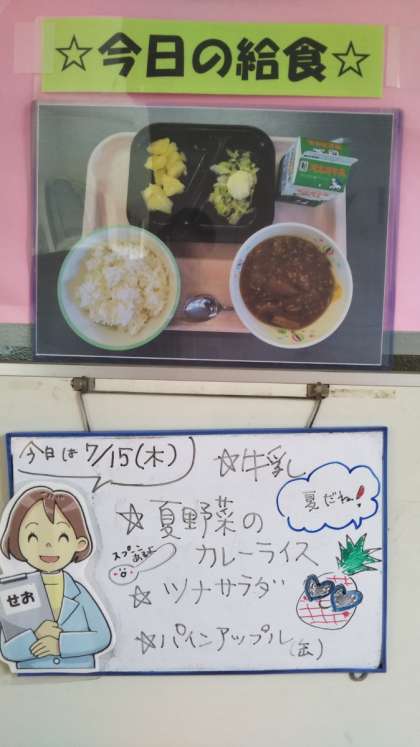 ☆今日の給食☆
今日は 7/15(木)
☆牛乳
夏だね!
☆夏野菜の
カレーライス
スプーンあるよ
☆ツナサラダ
☆パインアップル(缶)
せお